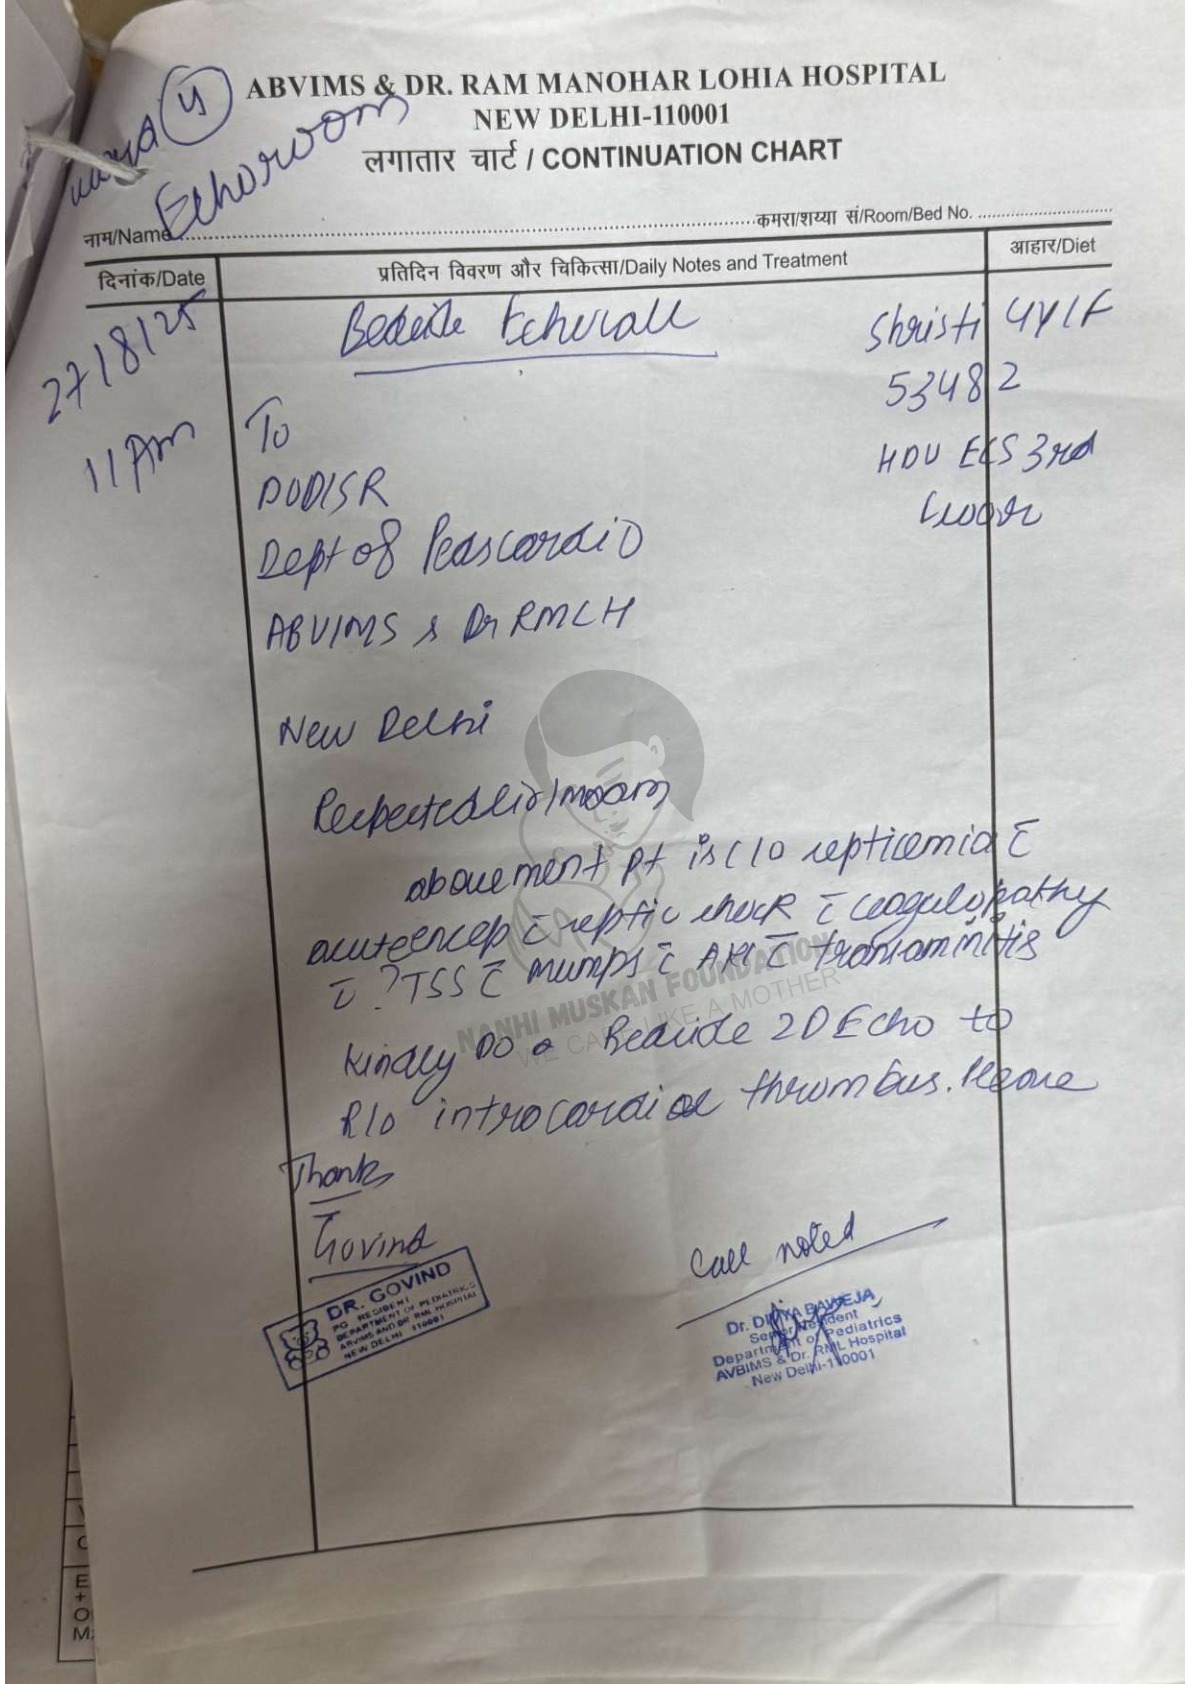 ABVIMS & DR. RAM MANOHAR LOHIA HOSPITAL
NEW DELHI-110001
लगातार चार्ट / CONTINUATION CHART
ward 4
Echoroom
नाम/Name
कमरा/शय्या सं/Room/Bed No.
दिनांक/Date
प्रतिदिन विवरण और चिकित्सा/Daily Notes and Treatment
आहार/Diet
27/8/25
11 Am
Bedside Echocall
Shristi 4Y/F
53482
HDU ECS 3rd
floor
To
DOD/SR
Dept of Paedscardio
ABVIMS & Dr RMLH
New Delhi
Respected Sir/maam
above ment pt is c/o septicemia c̄
acute encep c̄ septic shock c̄ coagulopathy
c̄ ?TSS c̄ mumps c̄ AKI c̄ transaminitis
Kindly Do a Bedside 2D Echo to
R/o intracardiac thrombus. Please
Thanks
Govind
DR. GOVIND
PG RESIDENT
DEPARTMENT OF PEDIATRICS
ABVIMS AND DR RML HOSPITAL
NEW DELHI 110001
Call noted
Dr. DIVYA BAWEJA
Senior Resident
Department of Pediatrics
AVBIMS & Dr. RML Hospital
New Delhi-110001
NANHI MUSKAN FOUNDATION
WE CARE LIKE A MOTHER
E
+
O
M